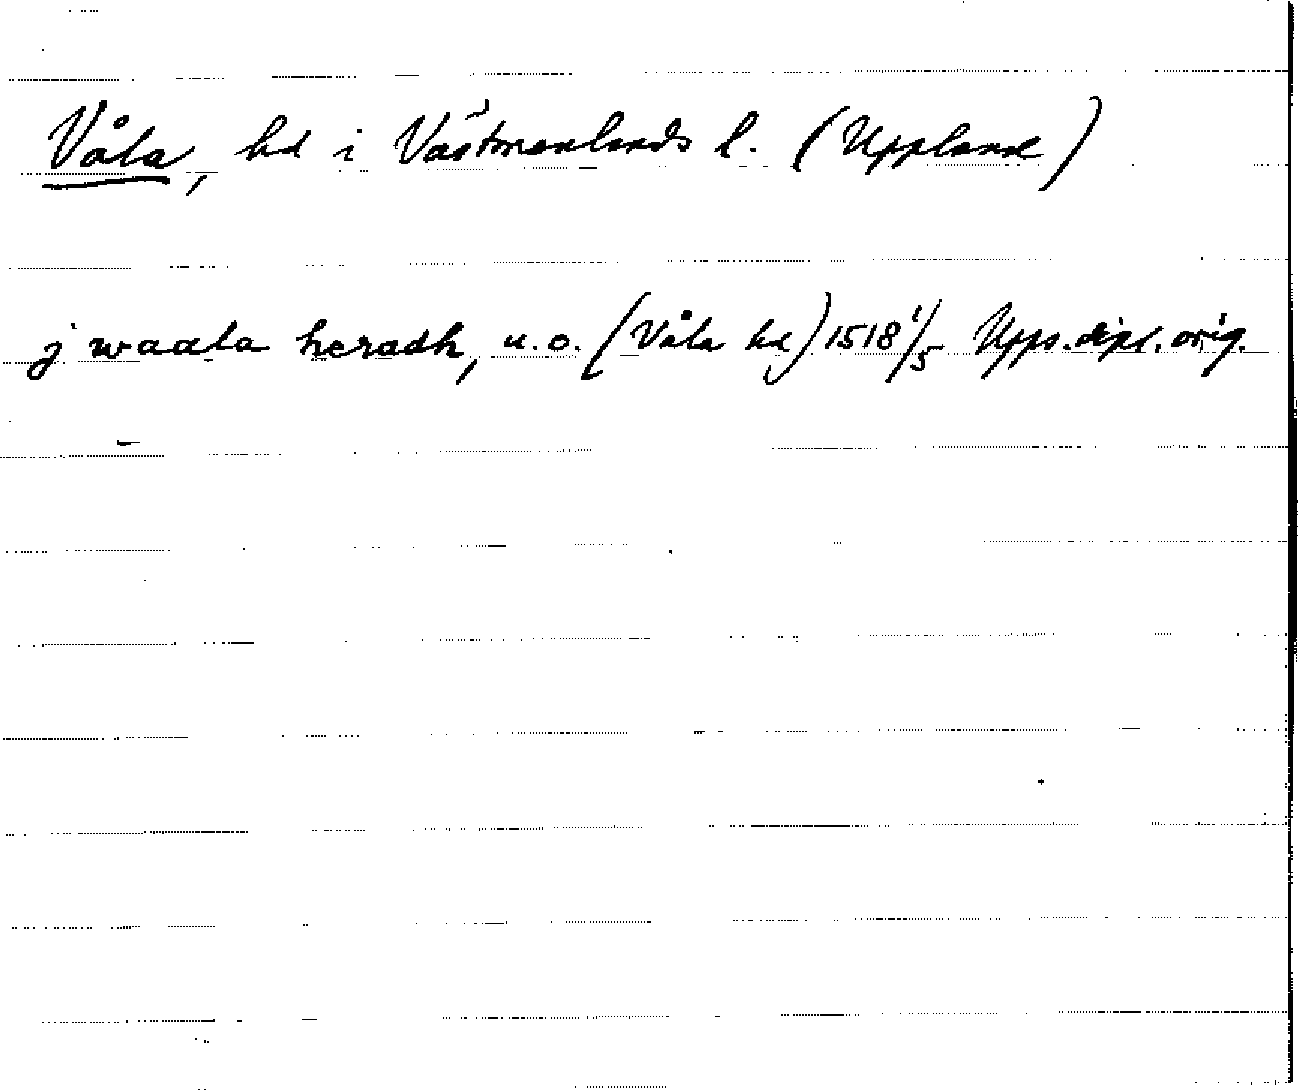 Våla, hd i Västmanlands l. (Uppland)
j waala heradh, u.o. (Våla hd) 1518 1/5 Upps. dipl. orig.